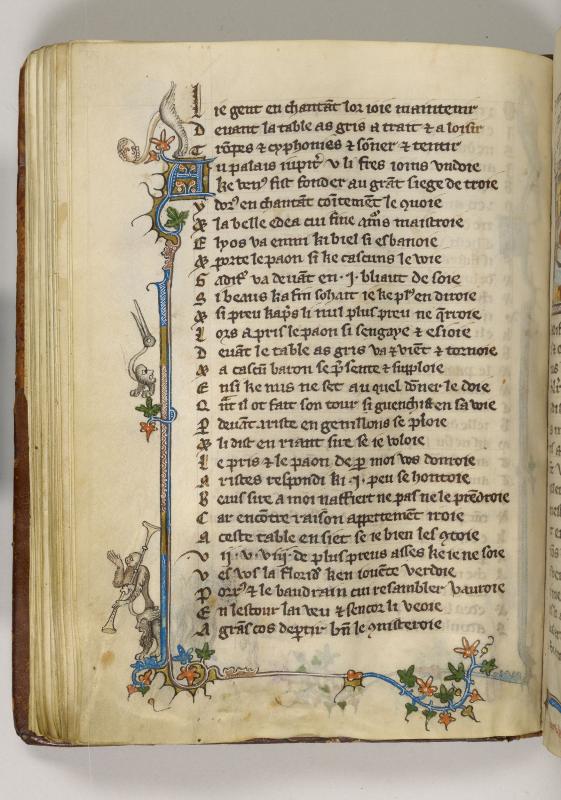 L ie gent en chantāt lor ioie maintenir
D euant la table as gris a trait ⁊ a loisir
T rōpes ⁊ cyphonies ⁊ sōner ⁊ tentir
A u palais iupit᷑ v li fres ioins vndoie
ke ven⁹ fist fonder au grāt siege de troie
en chantāt cōitemēt le quoie
⁊ la belle edea cui fine maistroie
E lyos va enmi ki biel si esbanoie
⁊ porte le paon si ke cascuns le voie
G adif᷑ va deuāt en ·i· bliaut de soie
S i beaus ka fin sohait ie ke pl⁹ en diroie
⁊ si preu kap̄s li nul plus preu ne q̄rroie
L ors a pris le paon si sengaye ⁊ esioie
D euāt le table as gris va ⁊ viēt ⁊ tornoie
⁊ a cascū baron se p̄sente ⁊ supploie
E nsi ke nus ne set au quel dōner le doie
Q nt il ot fait son tour si guenchist en sa voie
P deuāt ariste en genillons se ploie
⁊ li dist en riant sire se ie voloie
L e pris ⁊ le paon de p̱ moi vos donroie
A ristes respondi ki ·i· peu se hontoie
B eaus sire a moi naffiert ne pas ne le prēdroie
C ar encōtre raison appertemēt iroie
A ceste table en siet se ie bien les ꝯtoie
v ii · v · viii · de plus preus asses ke ie ne soie
v es vos la floridᷤ ken iouēte verdoie
P orr⁹ ⁊ le baudrain cui resambler vauroie
E n lestour lai veu ⁊ sencor li veoie
A grās cos departir bn̄ le ꝯnisteroie